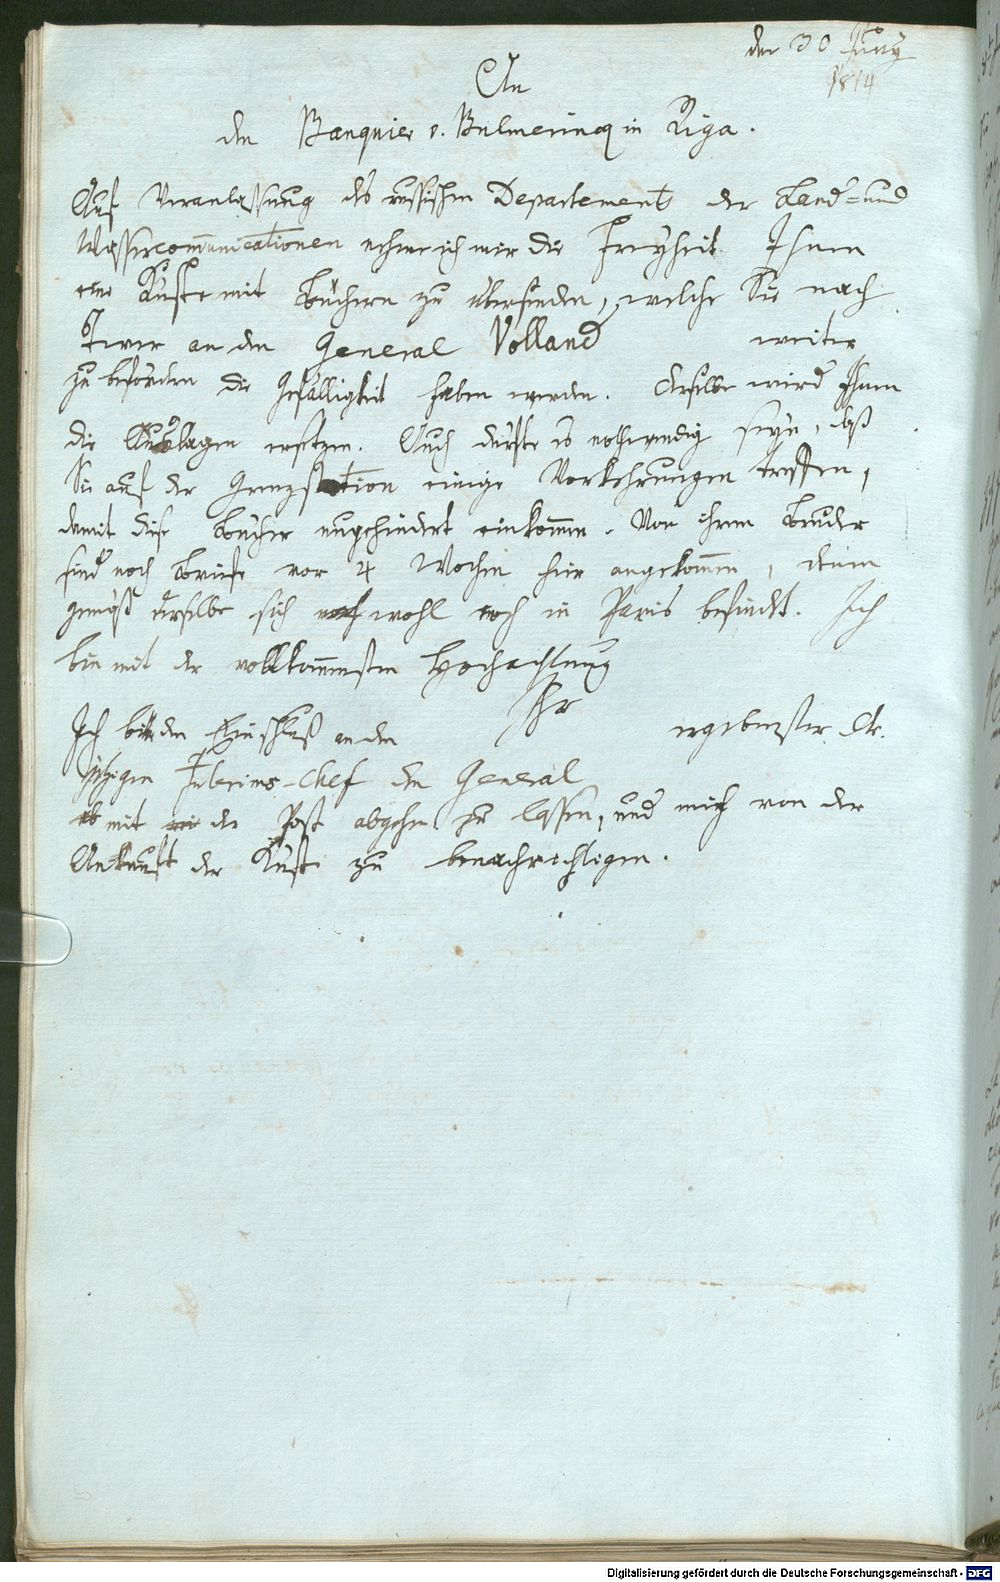 den 30 Juny
1814
An
den Banquier v. Bulmerincq in Riga.
Auf Veranlassung des russischen Departement der Land= und
Wassercommunicationen nehme ich mir die Freyheit Ihnen
eine Kiste mit Büchern zu übersenden, welche Sie nach
Twer an den General Volland weiter
zu befördern die Gefälligkeit haben werden. Derselbe wird Ihnen
die Auslagen ersetzen. Auch dürfte es nothwendig seyn, daß
Sie auf der Grenzstation einige Vorkehrungen treffen,
damit diese Bücher ungehindert einkommen. Von ihrem Bruder
sind noch Briefe vor 4 Wochen hier angekommen, denen
gemäß derselbe sich wohl noch in Paris befindet. Ich
bin mit der vollkommensten Hochachtung
Ihr
ergebenster Dr.
Ich bitte den Einschluß an den
jetzigen Interims-Chef den General
mit der Post abgehen zu lassen, und mich von der
Ankunft der Kiste zu benachrichtigen.
Digitalisierung gefördert durch die Deutsche Forschungsgemeinschaft - DFG